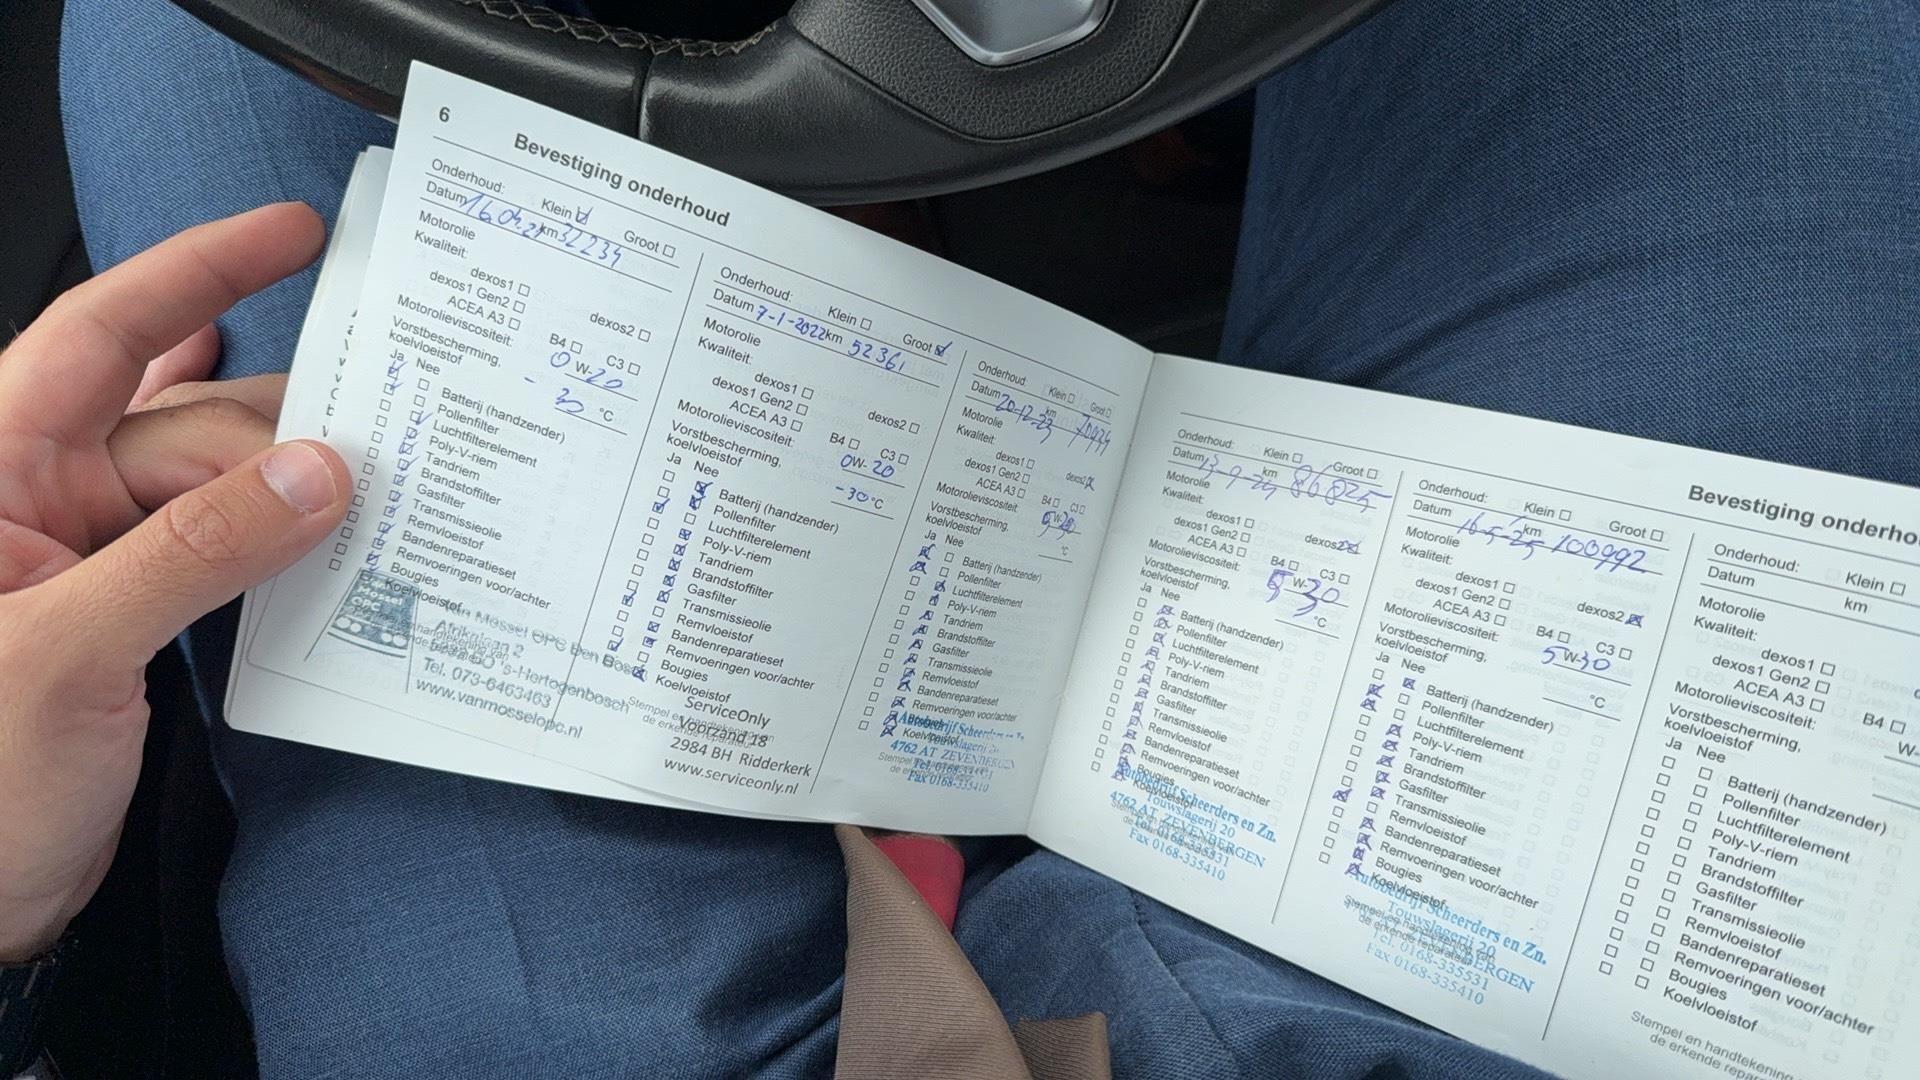 6
Bevestiging onderhoud
Onderhoud: Klein Groot
Datum 16.04.21 km 32234
Motorolie
Kwaliteit:
dexos1
dexos1 Gen2 dexos2
ACEA A3 B4 C3
Motorolieviscositeit: 0 W-20
Vorstbescherming, - 30 °C
koelvloeistof
Ja Nee
Batterij (handzender)
Pollenfilter
Luchtfilterelement
Poly-V-riem
Tandriem
Brandstoffilter
Gasfilter
Transmissieolie
Remvloeistof
Bandenreparatieset
Remvoeringen voor/achter
Bougies
Koelvloeistof
Van Mossel OPC Den Bosch
's-Hertogenbosch
Tel. 073-6463463
www.vanmosselopc.nl
Onderhoud: Klein Groot
Datum 7-1-2022 km 52361
Motorolie
Kwaliteit:
dexos1
dexos1 Gen2 dexos2
ACEA A3 B4 C3
Motorolieviscositeit: 0W-20
Vorstbescherming, -30 °C
koelvloeistof
Ja Nee
Batterij (handzender)
Pollenfilter
Luchtfilterelement
Poly-V-riem
Tandriem
Brandstoffilter
Gasfilter
Transmissieolie
Remvloeistof
Bandenreparatieset
Remvoeringen voor/achter
Bougies
Koelvloeistof
Stempel en handtekening van
de erkende reparateur
ServiceOnly
Voorzand 18
2984 BH Ridderkerk
www.serviceonly.nl
Onderhoud: Klein Groot
Datum 20-12-23 km
Motorolie
Kwaliteit:
dexos1
dexos1 Gen2 dexos2
ACEA A3 B4 C3
Motorolieviscositeit:
Vorstbescherming, °C
koelvloeistof
Ja Nee
Batterij (handzender)
Pollenfilter
Luchtfilterelement
Poly-V-riem
Tandriem
Brandstoffilter
Gasfilter
Transmissieolie
Remvloeistof
Bandenreparatieset
Remvoeringen voor/achter
Koelvloeistof
Autobedrijf Scheerders en Zn.
Touwslagerij 20
4762 AT ZEVENBERGEN
Fax 0168-335410
Onderhoud: Klein Groot
Datum km 86825
Motorolie
Kwaliteit:
dexos1
dexos1 Gen2 dexos2
ACEA A3 B4 C3
Motorolieviscositeit: 5 W-30
Vorstbescherming, °C
koelvloeistof
Ja Nee
Batterij (handzender)
Pollenfilter
Luchtfilterelement
Poly-V-riem
Tandriem
Brandstoffilter
Gasfilter
Transmissieolie
Remvloeistof
Bandenreparatieset
Remvoeringen voor/achter
Bougies
Koelvloeistof
Autobedrijf Scheerders en Zn.
Touwslagerij 20
4762 AT ZEVENBERGEN
Tel. 0168-335531
Fax 0168-335410
Bevestiging onderho
Onderhoud: Klein Groot
Datum 16-5-25 km 100992
Motorolie
Kwaliteit:
dexos1
dexos1 Gen2 dexos2
ACEA A3 B4 C3
Motorolieviscositeit: 5 W-30
Vorstbescherming, °C
koelvloeistof
Ja Nee
Batterij (handzender)
Pollenfilter
Luchtfilterelement
Poly-V-riem
Tandriem
Brandstoffilter
Gasfilter
Transmissieolie
Remvloeistof
Bandenreparatieset
Remvoeringen voor/achter
Bougies
Koelvloeistof
Autobedrijf Scheerders en Zn.
Touwslagerij 20
ZEVENBERGEN
Tel. 0168-335531
Fax 0168-335410
Onderhoud: Klein
Datum km
Motorolie
Kwaliteit:
dexos1
dexos1 Gen2
ACEA A3 B4
Motorolieviscositeit: W-
Vorstbescherming,
koelvloeistof
Ja Nee
Batterij (handzender)
Pollenfilter
Luchtfilterelement
Poly-V-riem
Tandriem
Brandstoffilter
Gasfilter
Transmissieolie
Remvloeistof
Bandenreparatieset
Remvoeringen voor/achter
Bougies
Koelvloeistof
Stempel en handtekening
de erkende reparat